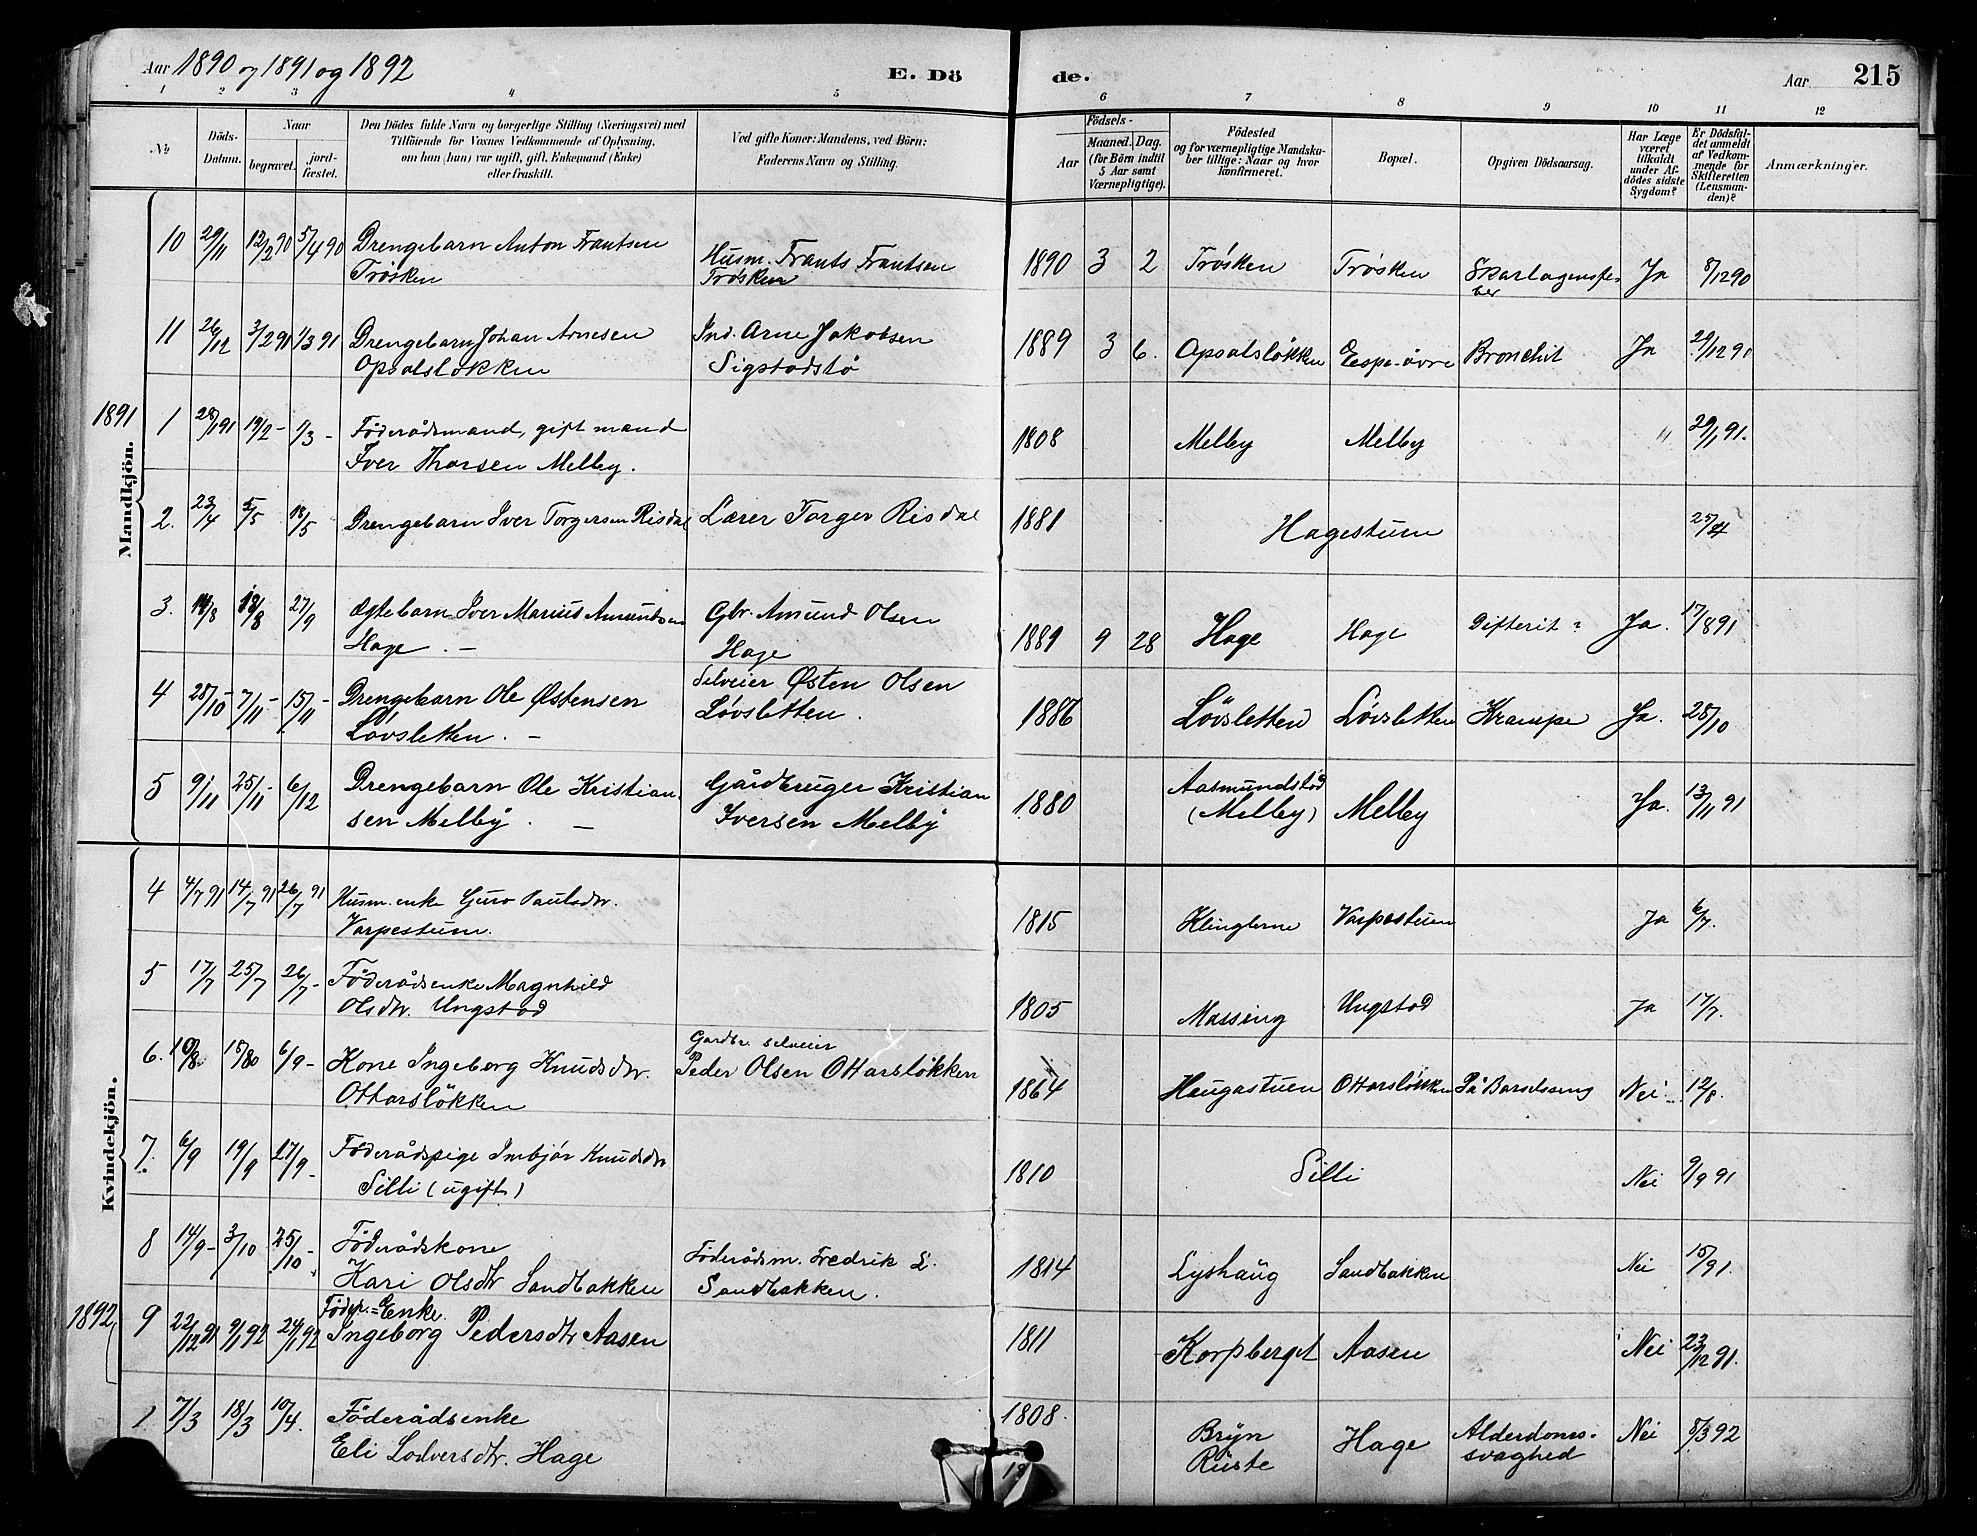 Aar 1890 og 1891 og 1892
E. Dö
de.
Aar
215
1 2 3 4 5 6 7 8 9 10 11 12
No
Döds-
Datum.
Naar
begravet.
jord-
fæstet.
Den Dödes fulde Navn og borgerlige Stilling (Næringsvei) med
Tilföiende for Voxnes Vedkommende af Oplysning,
om han (hun) var ugift, gift, Enkemand (Enke)
eller fraskilt.
Ved gifte Koner: Mandens, ved Börn:
Faderens Navn og Stilling.
Födsels-
Aar
Maaned. Dag.
(for Börn indtil
5 Aar samt
Værnepligtige).
Födested
og for værnepligtige Mandska-
ber tillige: Naar og hvor
konfirmeret.
Bopæl.
Opgiven Dödsaarsag.
Har Læge
været
tilkaldt
under Af-
dödes sidste
Sygdom?
Er Dödsfal-
det anmeldt
af Vedkom-
mende for
Skifteretten
(Lensman-
den)?
Anmærkninger.
Mandkjön.
10 29/11 12/2 90 5/4 90 Drengebarn Anton Frantsen
Trösken
Husm. Frants Frantsen
Trösken
1890 3 2 Trösken Trösken Skarlagensfe-
ber
Ja 8/12 90
11 26/12 3/2 91 1/3 91 Drengebarn Johan Arnesen
Opsalsløkken
Ind. Arne Jakobsen
Sigstadstø
1889 3 6. Opsalsløkken Espe-øvre Bronchit Ja 29/12 90
1891
1 28/1 91 19/2 - 1/3 - Föderådsmand, gift mand
Iver Thorsen Melby.
1808 Melby Melby " 29/1 91.
2. 23/4 5/5 18/5 Drengebarn Iver Torgersen Risdal
Lærer Torger Risdal
1881 Hagestuen 25/4
3. 14/8 18/8 27/9 Ægtebarn Iver Marius Amundsen
Hage. -
Gbr. Amund Olsen
Hage
1889 9 28 Hage Hage Difterit ? Ja. 17/8 91
4 28/10 7/11 - 15/11 - Drengebarn Ole Østensen
Løvsletten. -
Selveier Østen Olsen
Løvsletten.
1886 Løvsletten Løvsletten Krampe Ja. 28/10
5 9/11 25/11 - 6/12 Drengebarn Ole Kristian-
sen Melby. -
Gårdbruger Kristian
Iversen Melby
1880 Aasmundstad
(Melby) Melby Ja. 13/11 91
Kvindekjön.
4 4/7 91 14/7 91 26/7 91 Husm.enke Guro Paulsdtr.
Varpestuen.
1815 Klinglerne Varpestuen Ja 6/7.
5 17/7 25/7 26/7 - Föderådsenke Magnhild
Olsdtr. Ungstad
1805 Massing Ungstad Ja 17/7.
6. 10/8. 15/80 6/9 - Kone Ingeborg Knudsdtr.
Ottarsløkken
Gardbr. selveier
Peder Olsen Ottarsløkken
1864 Haugastuen Ottarsløkken På Barselseng Nei 12/8.
7. 6/9 19/9 27/9 - Föderådspige Imbjør Knudsdtr
Silli (ugift)
1810 Silli Nei 9/9 91
8 14/9 - 3/10 25/10 - Föderådskone
Kari Olsdtr Sandbakken
Föderådsm. Fredrik L.
Sandbakken.
1814 Lyshaug Sandbakken Nei 15/9 91.
9 22/12 91 9/1 92 24/1 92 Föder.=Enke.
Ingeborg Pedersdtr Aasen
1811 Korpberget Aasen Nei 23/12 91.
1892
1 7/3 18/3 10/4. Föderådsenke
Eli Lodversdtr. Hage
1808. Bryn
Ruste
Hage Alderdoms-
svaghed
Nei 8/3 92